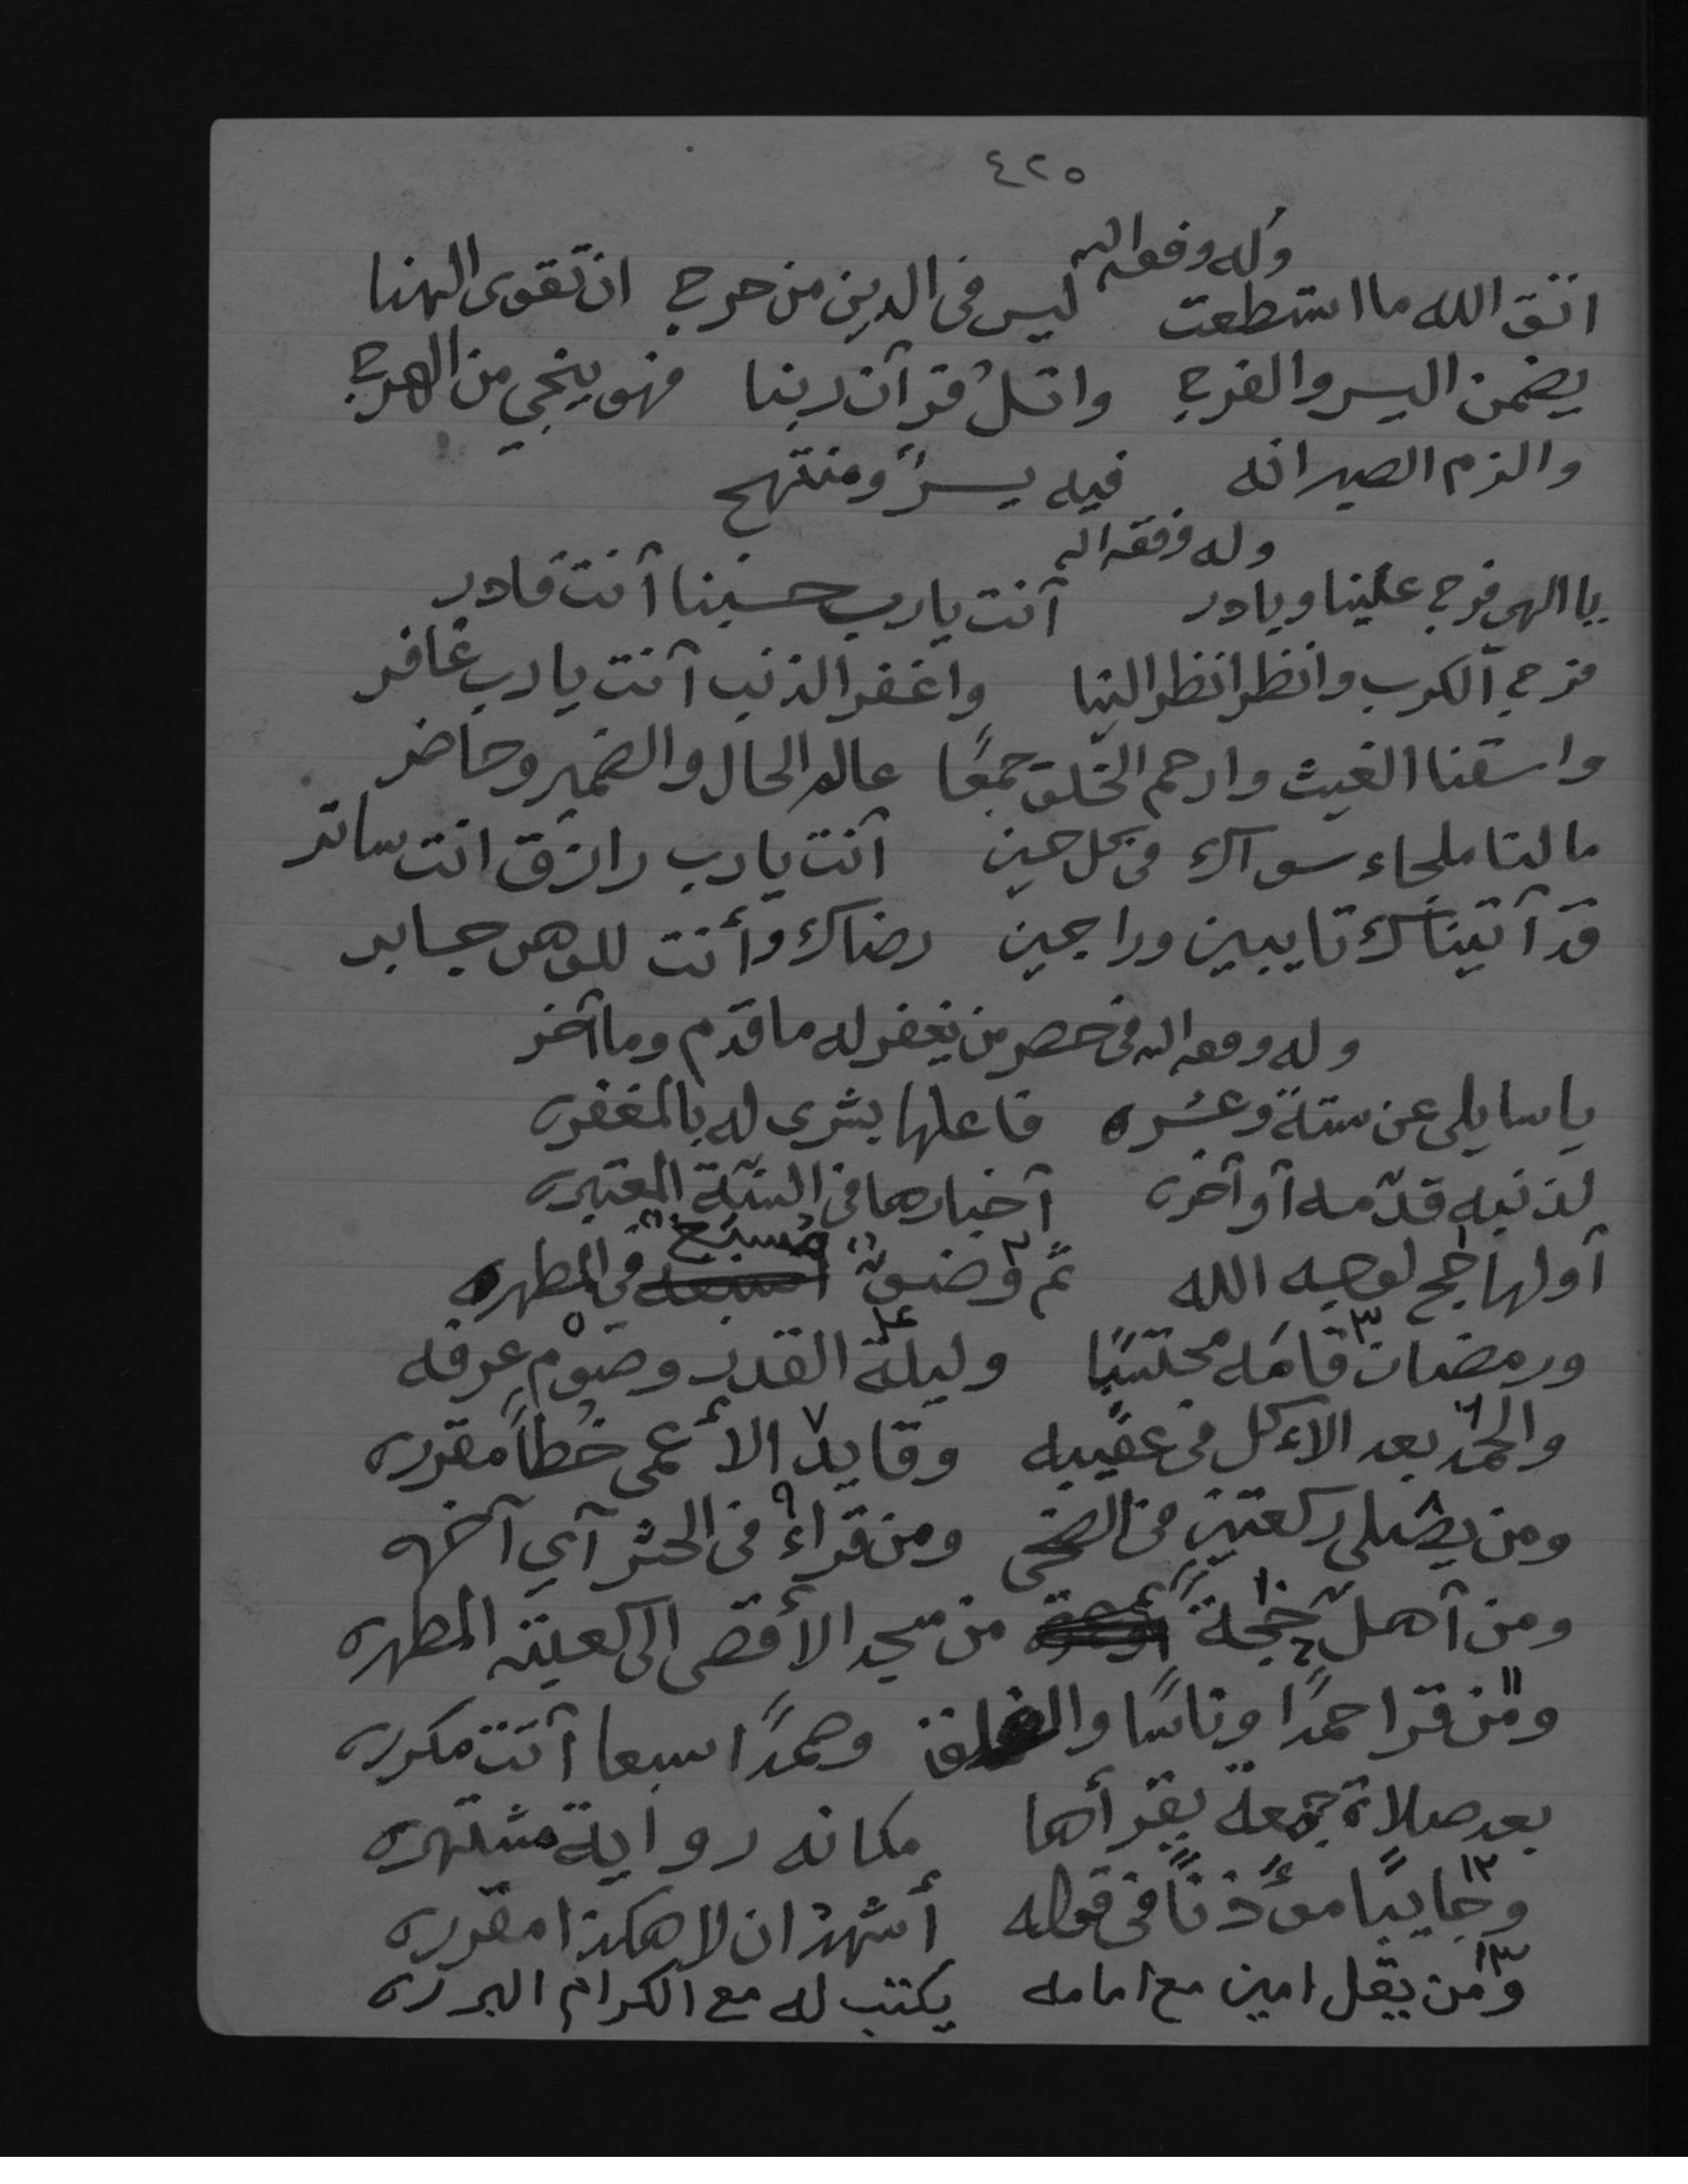 ٤٢٥
وله وفقه الله
اتق الله ما استطعت ليس فى الدين من حرج ان تقوى الهنا
يضمن اليسر والفرج واتل قرآن ربنا فهو ينجي من الهرج
والزم الصبر انه فيه يسرًا ومنتهج
وله وفقه الله
يا الهى فرج علينا وبادر أنت يارب حسبنا أنت قادر
فرج الكرب وانظر انظر الينا واغفر الذنب أنت يارب غافر
واسقنا الغيث وارحم الخلق جمعًا عالم الحال والضمير وحاضر
مالنا ملجاء سواك فى كل حين أنت يارب رازق انت ساتر
قد أتيناك تايبين وراجين رضاك وأنت للوهن جابر
وله وفقه الله فى حصر من يغفر له ما قدم وما أخر
يا سايلى عن ستة وعشره فاعلها بشرى له بالمغفره
لذنبه قدّمه أو أخره أخبارها فى السنّة المعتبره
أولها حج لوجه الله ثم وضوء مسبغ فى المطهره
ورمضان قامه محتسبًا وليلة القدر وصوم عرفه
والحمد بعد الاءكل فى عقيبه وقايد الأعمى خُطاً مقرره
ومن يصلى ركعتين فى الضحى ومن قراء فى الحشر آي آخره
ومن أهل حجة من مسجد الأقصى الى كعبته المطهره
ومن قرا حمدًا وناسًا والفلق وحمدًا سبعا أتت مكرره
بعد صلاة جمعة يقرأها مكانه رواية مشتهره
وجايبًا مؤذنًا فى قوله أشهد ان لا هكذا مقرره
ومن يقل امين مع امامه يكتب له مع الكرام البرره